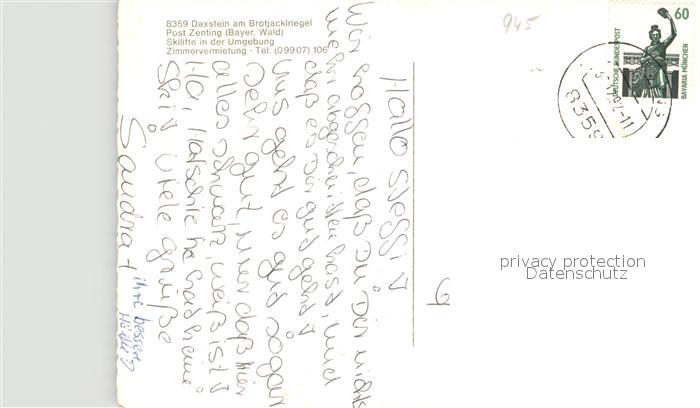 8359 Daxstein am Brotjacklriegel
Post Zenting (Bayer. Wald)
Skilifte in der Umgebung
Zimmervermietung - Tel. (09907) 106
945
60
DEUTSCHE BUNDESPOST
BAVARIA MÜNCHEN
8359
Hallo Steffi
Wir hoffen, daß Du Dir nichts
mehr abgeschnitten hast, und
daß es Dir gut geht
Uns geht es gut sogar
sehr gut, nur daß hier
alles schwarz weiß ist
Ha,
Ski Viele Grüße
Sandra +
ihre bessere
Hälfte
privacy protection
Datenschutz